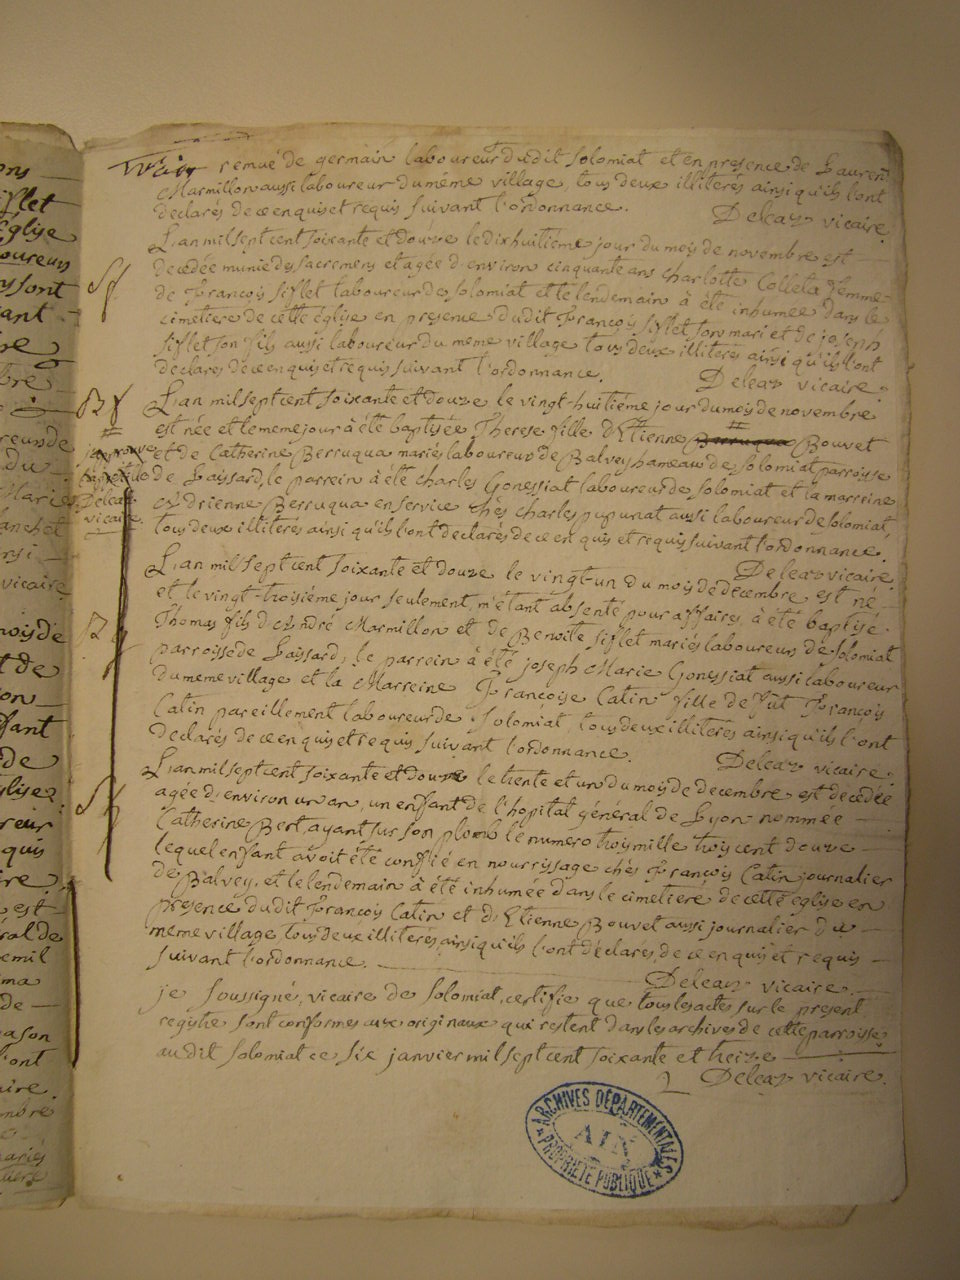 remué de germain laboureur dudit Solomiat et en presence de Laurent
Marmillon aussi laboureur du même village, tous deux illiterés ainsi qu'ils l'ont
declarés de ce enquis et requis suivant l'ordonnance. Deleaz vicaire.
L'an mil sept cent soixante et douze le dixhuitième jour du mois de novembre est
decedée munie des sacremens et agée d'environ cinquante ans Charlotte Colleta femme
de François Siflet laboureur de Solomiat et le lendemain à été inhumée dans le
cimetiere de cette église en presence dudit François Siflet son mari et de joseph
Siflet son fils aussi laboureur du meme village tous deux illiterés ainsi qu'ils l'ont
declarés de ce enquis et requis suivant l'ordonnance. Deleaz vicaire.
L'an mil sept cent soixante et douze le vingt-huitiéme jour du mois de novembre
est née et le meme jour à été baptisée Therese fille d'Etienne Berruqua Bouvet
et de Catherine Berruqua mariés laboureurs de Balvey hameau de Solomiat parroisse
de Laissard, le parrein à été Charles Gonessiat laboureur de Solomiat et la marreine
Adrienne Berruqua en service chés Charles pupunat aussi laboureur de Solomiat
tous deux illiterés ainsi qu'ils l'ont declarés de ce enquis et requis suivant l'ordonnance.
Deleaz vicaire
Deleaz vicaire.
L'an mil sept cent soixante et douze le vingt-un du mois de decembre est né
et le vingt-troisiéme jour seulement, m'étant absenté pour affaires, à été baptisé
Thomas fils d'André Marmillon et de Benoite Siflet mariés laboureurs de Solomiat
parroisse de Laissard, le parrein à été joseph Marie Gonessiat aussi laboureur
du meme village et la Marreine Françoise Catin fille de fût François
Catin pareillement laboureur de Solomiat, tous deux illiterés ainsi qu'ils l'ont
declarés de ce enquis et requis suivant l'ordonnance. Deleaz vicaire.
L'an mil sept cent soixante et douze le trente et un du mois de decembre est decedée
agée d'environ un an, un enfant de l'hopital général de Lyon nommée
Catherine Bert, ayant sur son plomb le numero trois mille trois cent douze
lequel enfant avoit été confié en nourrissage chés François Catin journalier
de Balvey, et le lendemain à été inhumée dans le cimetiere de cette église en
presence dudit François Catin et d'Etienne Bouvet aussi journalier du
meme village, tous deux illiterés, ainsi qu'ils l'ont déclarés, de ce enquis et requis
suivant l'ordonnance. Deleaz vicaire.
je soussigné, vicaire de Solomiat, certifie que tous les actes sur le present
registre sont conformes aux originaux qui restent dans les archives de cette parroisse
audit Solomiat ce six janvier mil sept cent soixante et treize
Deleaz vicaire.
ARCHIVES DÉPARTEMENTALES
AIN
PROPRIÉTÉ PUBLIQUE